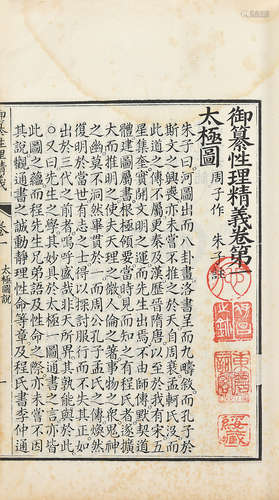 御纂性理精義卷第一
太極圖 周子作 朱子註
朱子曰河圖出而八卦畫洛書呈而九疇叙而孔子於
斯文之興喪亦未嘗不推之於天自周衰孟軻氏沒而
此道之傳不屬更秦及漢歷晉隋唐以至於我有宋五
星集奎實開文明之運而先生出焉不由師傳默契道
體建圖屬書根極領要當時見而知之有程氏者遂擴
大而推明之使夫天理之微人倫之著事物之衆鬼神
之幽莫不洞然畢貫於一而周公孔子孟氏之傳煥然
復明於當世有志之士得以探討服行而不失其正如
出於三代之前者嗚呼盛哉非天所畀其孰能與於此
○又曰先生之學其妙具於太極一圖通書之言亦皆
此圖之蘊而程先生兄弟語及性命之際亦未嘗不因
其說觀通書之誠動靜理性命等章及程氏書李仲通
御纂性理精義 卷一 太極圖說 一